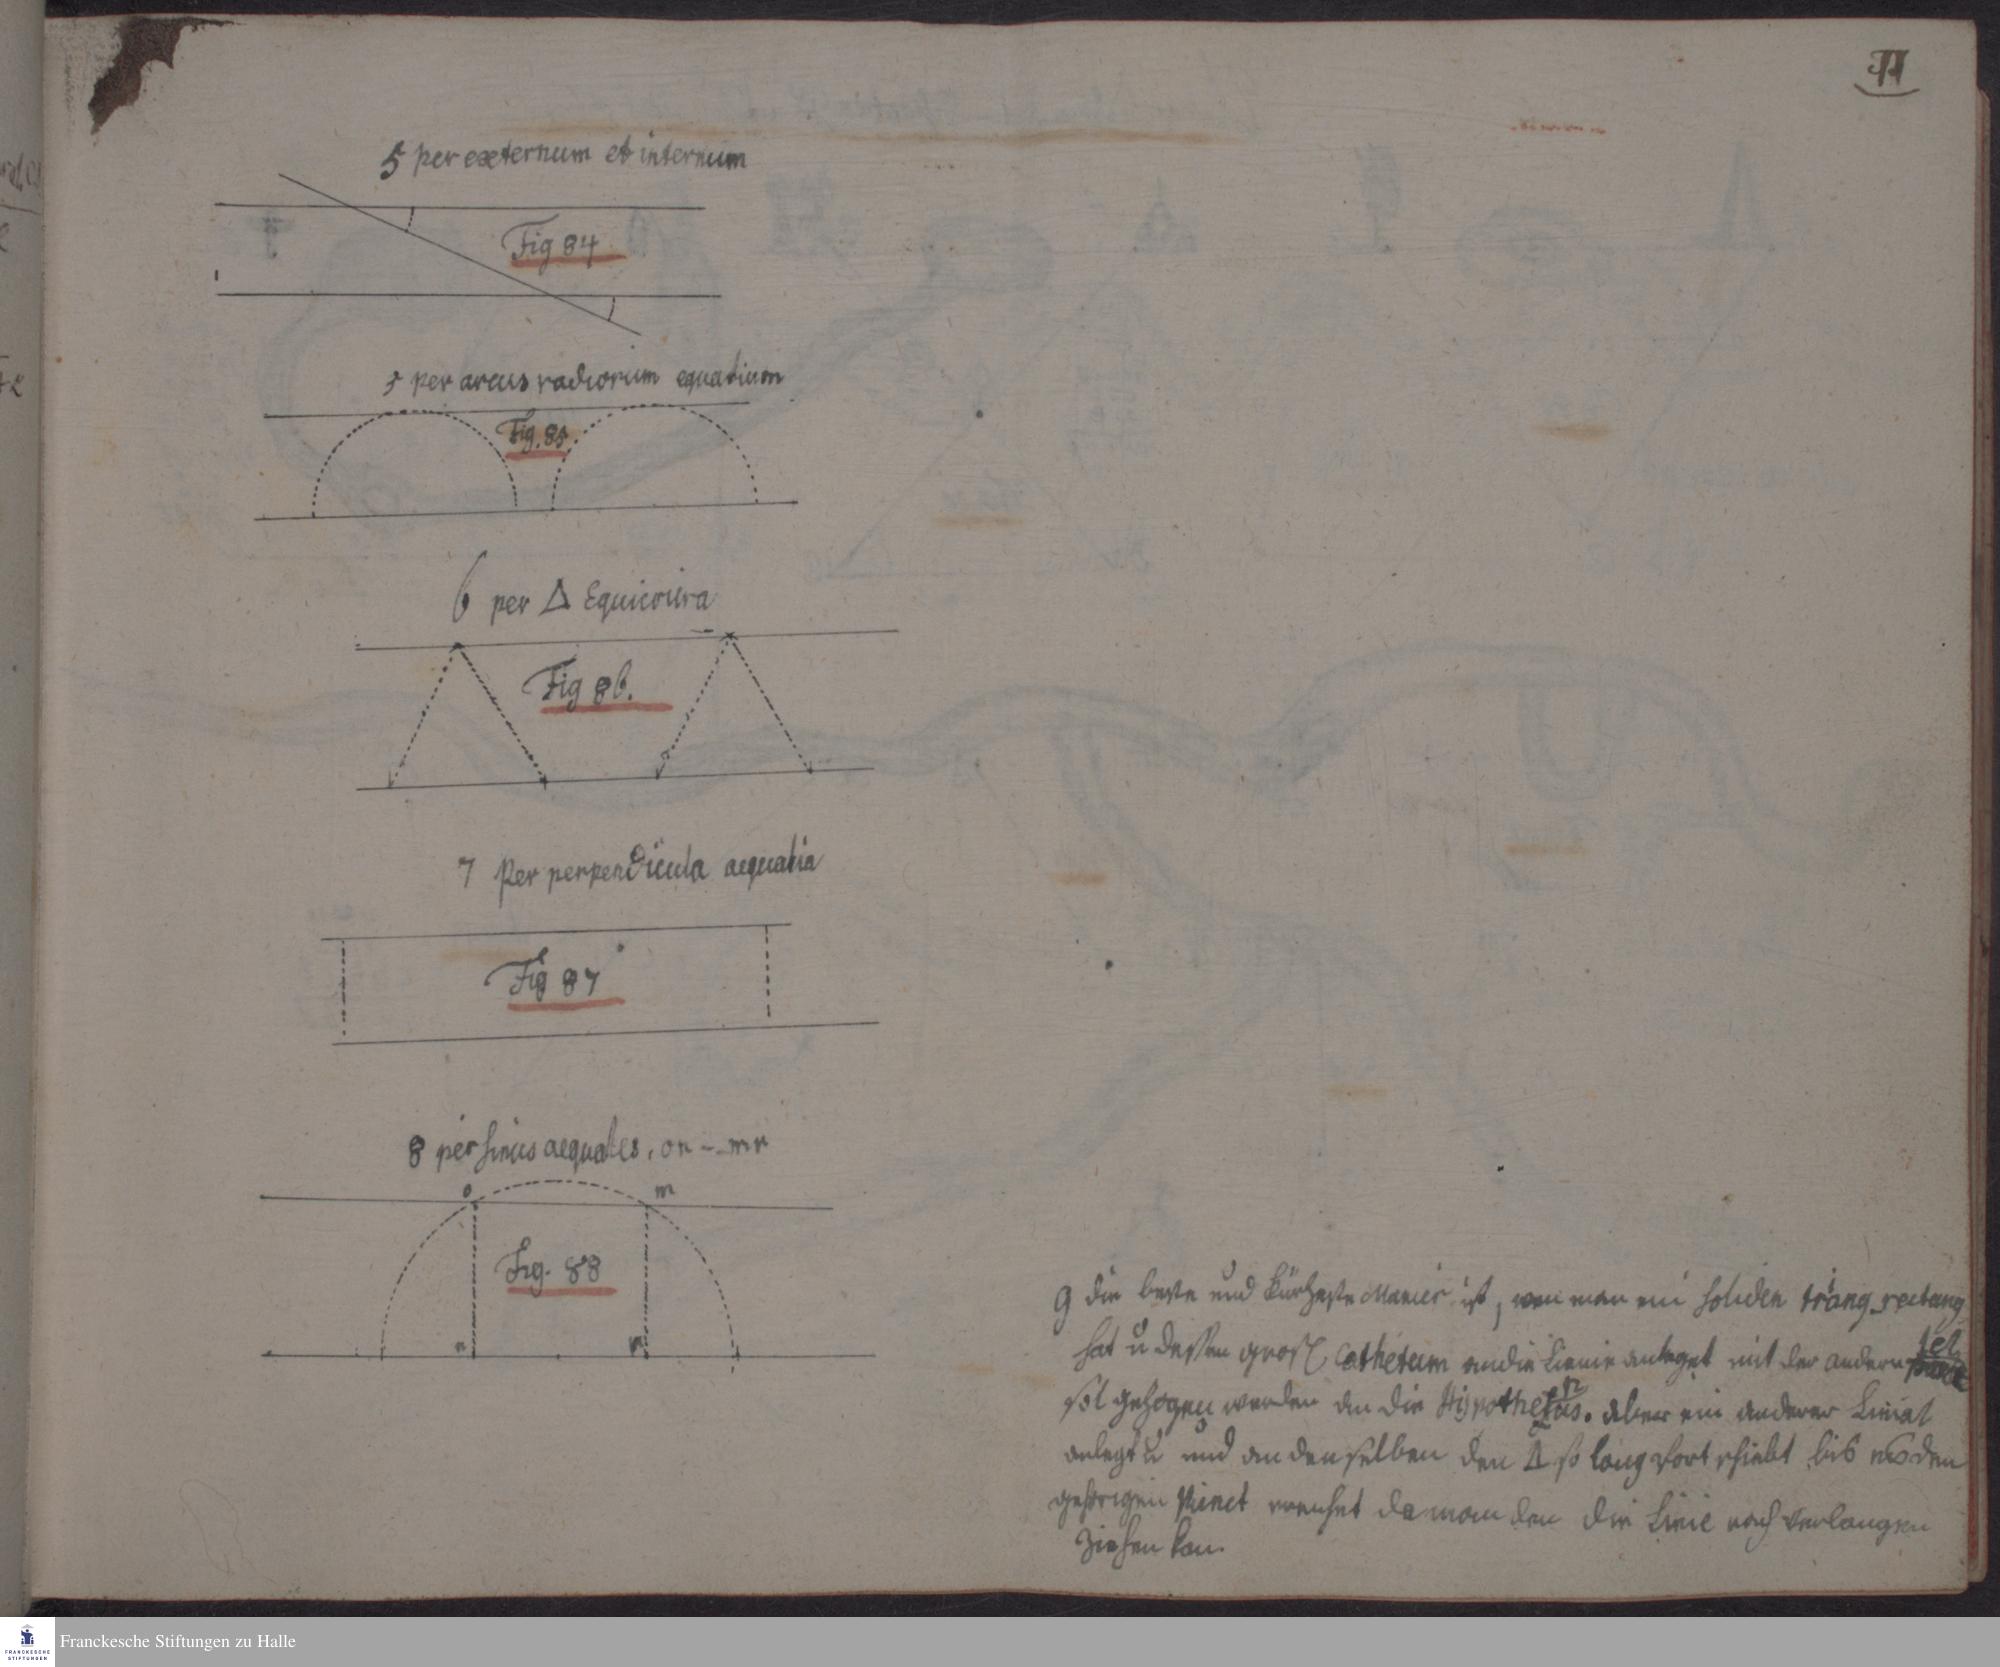 11
5 per externum et internum
Fig 84
5 per arcus radiorum equalium
Fig. 85
6 per Δ Equicrura
Fig 86.
7 Per perpendicula aequalia
Fig 87
8 per sinus aequales, on -- mn
o m
Fig. 88
n n
9 die beste und kürtzeste Manier ist, wen man ein soliden triang rectang
hat u dessen groß Cathetum an die Linie anleget mit der andern lel
sol gezogen werden an die Hypothenus. aber ein anderer Linial
anlegt u und an denselben den Δ so lang fort schiebt bis es den
gehörigen Punct erreichet da man den die Linie nach verlangen
ziehen kan.
Franckesche Stiftungen zu Halle
FRANCKESCHE
STIFTUNGEN